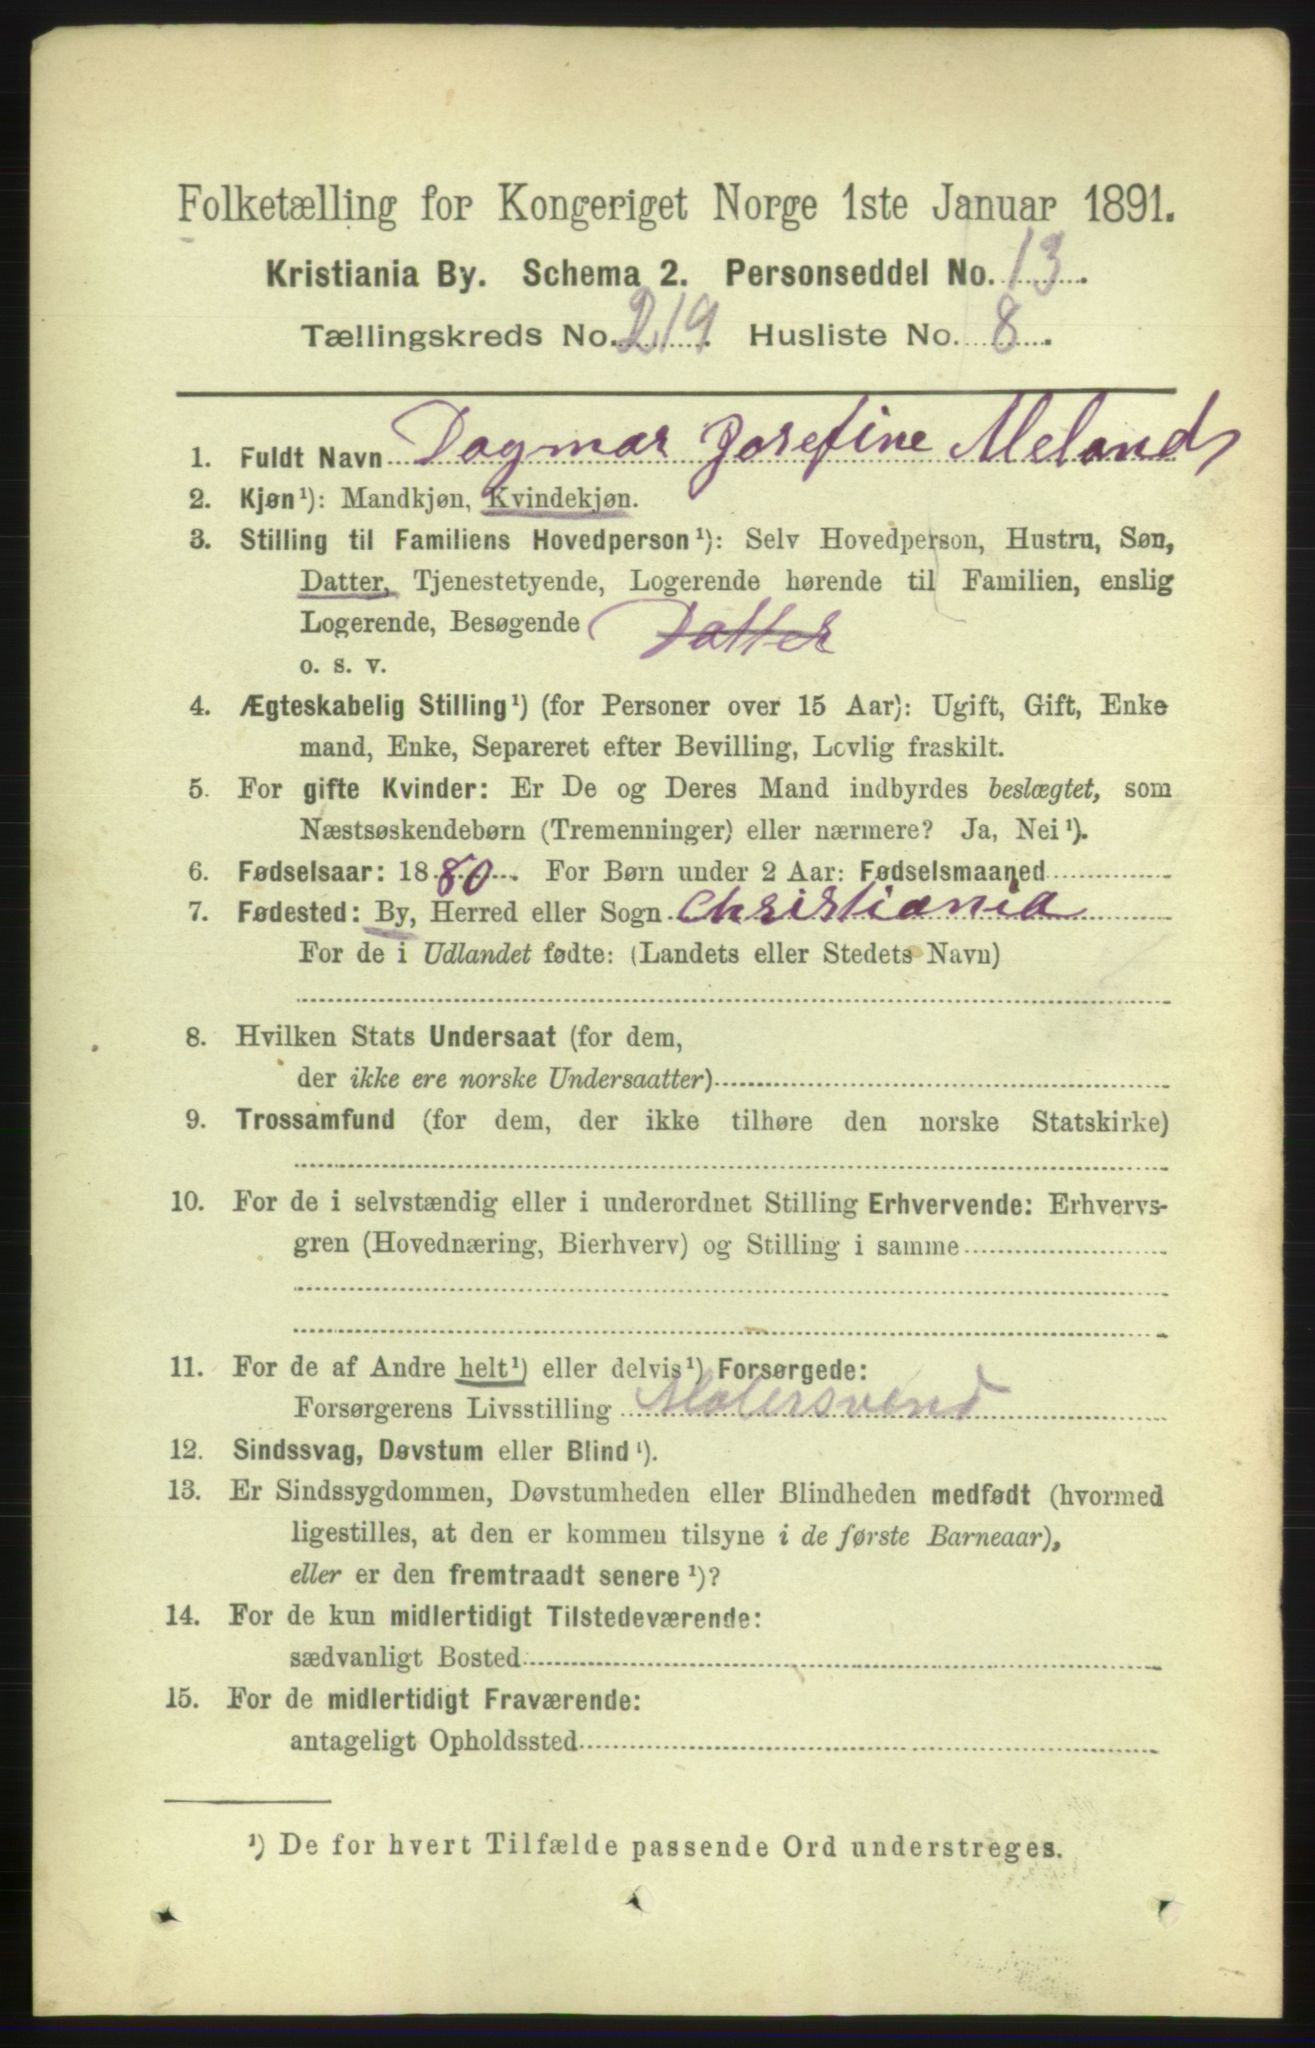 Folketælling for Kongeriget Norge 1ste Januar 1891.
Kristiania By. Schema 2. Personseddel No. 13.
Tællingskreds No. 219. Husliste No. 8.
1. Fuldt Navn Dagmar Josefine Meland
2. Kjøn¹): Mandkjøn, Kvindekjøn.
3. Stilling til Familiens Hovedperson¹): Selv Hovedperson, Hustru, Søn,
Datter, Tjenestetyende, Logerende hørende til Familien, enslig
Logerende, Besøgende Datter
o. s. v.
4. Ægteskabelig Stilling¹) (for Personer over 15 Aar): Ugift, Gift, Enke
mand, Enke, Separeret efter Bevilling, Lovlig fraskilt.
5. For gifte Kvinder: Er De og Deres Mand indbyrdes beslægtet, som
Næstsøskendebørn (Tremenninger) eller nærmere? Ja, Nei¹).
6. Fødselsaar: 1880. For Børn under 2 Aar: Fødselsmaaned
7. Fødested: By, Herred eller Sogn Christiania
For de i Udlandet fødte: (Landets eller Stedets Navn)
8. Hvilken Stats Undersaat (for dem,
der ikke ere norske Undersaatter)
9. Trossamfund (for dem, der ikke tilhøre den norske Statskirke)
10. For de i selvstændig eller i underordnet Stilling Erhvervende: Erhvervs-
gren (Hovednæring, Bierhverv) og Stilling i samme
11. For de af Andre helt¹) eller delvis¹) Forsørgede:
Forsørgerens Livsstilling Malersvend
12. Sindssvag, Døvstum eller Blind¹).
13. Er Sindssygdommen, Døvstumheden eller Blindheden medfødt (hvormed
ligestilles, at den er kommen tilsyne i de første Barneaar),
eller er den fremtraadt senere¹)?
14. For de kun midlertidigt Tilstedeværende:
sædvanligt Bosted
15. For de midlertidigt Fraværende:
antageligt Opholdssted
¹) De for hvert Tilfælde passende Ord understreges.